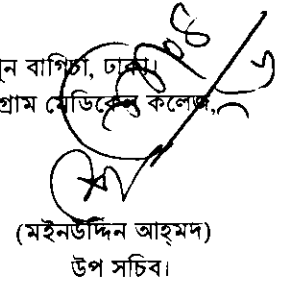 ন বাগিচা, ঢাকা।
গ্রাম মেডিকেল কলেজ,
(মইনউদ্দিন আহ্‌মদ)
উপ সচিব।